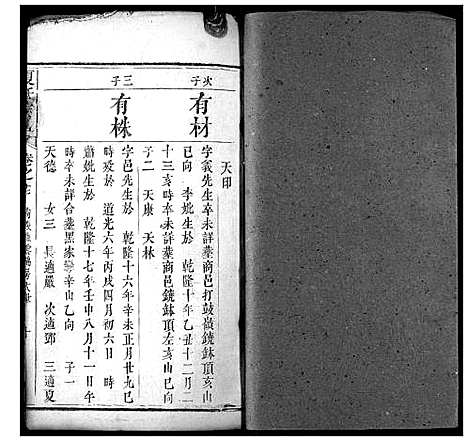 天印
次子
有材
字義先生卒未詳墓商邑打鼓嶺鐃鈸頂亥山
巳向 李妣生於 乾隆十年乙丑十二月二
十三亥時卒未詳墓商邑鐃鈸頂左亥山巳向
子二 天康 天林
三子
有株
字邑先生於 乾隆十六年辛未正月廿九巳
時歿於 道光六年丙戌四月初六日 時
蕭妣生於 乾隆十七年壬申八月十一日午
時卒未詳合墓黑家 辛山乙向 子一
天德 女三 長適嚴 次適鄧 三適夏
夏氏
卷之